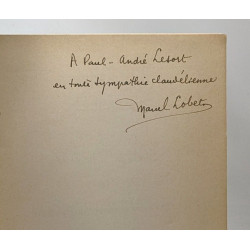 A Paul-André Lesort
en toute sympathie claudélienne
Marcel Lobet